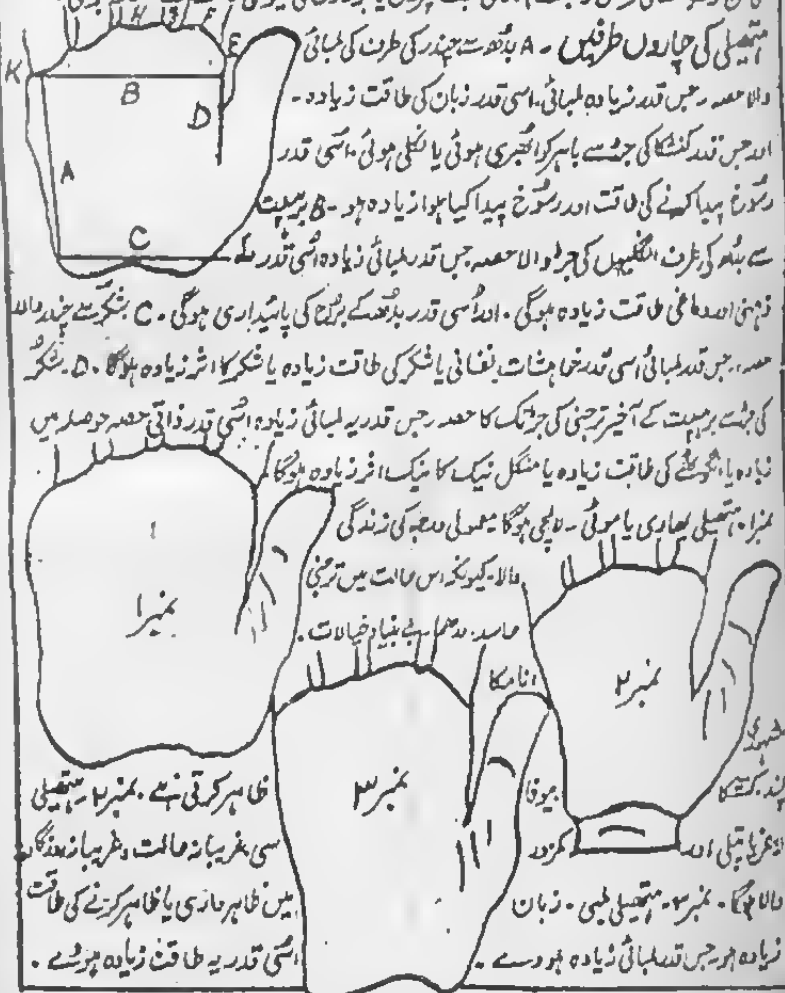 H 3 F
K E
B D
A
C
ہتھیلی کی چاروں طرفیں - A بدھ سے چندر کی طرف کی لمبائی
والا حصہ جس قدر زیادہ لمبائی، اسی قدر زبان کی طاقت زیادہ -
اور جس قدر کنشکا کی جڑ سے باہر کو ابھری ہوئی یا نکلی ہوئی، اسی قدر
رسوخ پیدا کرنے کی طاقت اور رسوخ پیدا کیا ہوا زیادہ ہو - B برہسپت
سے بدھ کی طرف انگلیوں کی جڑ والا حصہ جس قدر لمبائی زیادہ اسی قدر
ذہنی اور دماغی طاقت زیادہ ہوگی - اور اسی قدر بدھ کے برج کی پائیداری ہوگی - C شکر سے چندر والا
حصہ، جس قدر لمبائی اسی قدر خواہشات نفسانی یا شکر کی طاقت زیادہ یا شکر کا اثر زیادہ ہوگا - D شکر
کی جڑ سے برہسپت کے آخیر ترجنی کی جڑ تک کا حصہ جس قدر یہ لمبائی زیادہ اسی قدر ذاتی حصہ حوصلہ میں
زیادہ یا انگوٹھے کی طاقت زیادہ یا منگل نیک کا نیک اثر زیادہ ہوگا
نمبر ۱ - ہتھیلی بھاری یا موٹی - لالچی ہوگا معمولی درجہ کی زندگی
والا - کیونکہ اس حالت میں ترجنی
حاسد، بے بنیاد خیالات -
انامکا
نمبر ۱
نمبر ۲
نمبر ۳
پسند - کنشکا بیوفا ظاہر کرتی ہے - نمبر ۲ - ہتھیلی
لاغر یا پتلی اور کمزور سی غریبانہ حالت و غریبانہ
والا ہوگا - نمبر ۳ - ہتھیلی لمبی - زبان میں ظاہر داری یا ظاہر کرنے کی طاقت
زیادہ ہو جس قدر لمبائی زیادہ ہووے - اسی قدر یہ طاقت زیادہ ہووے -